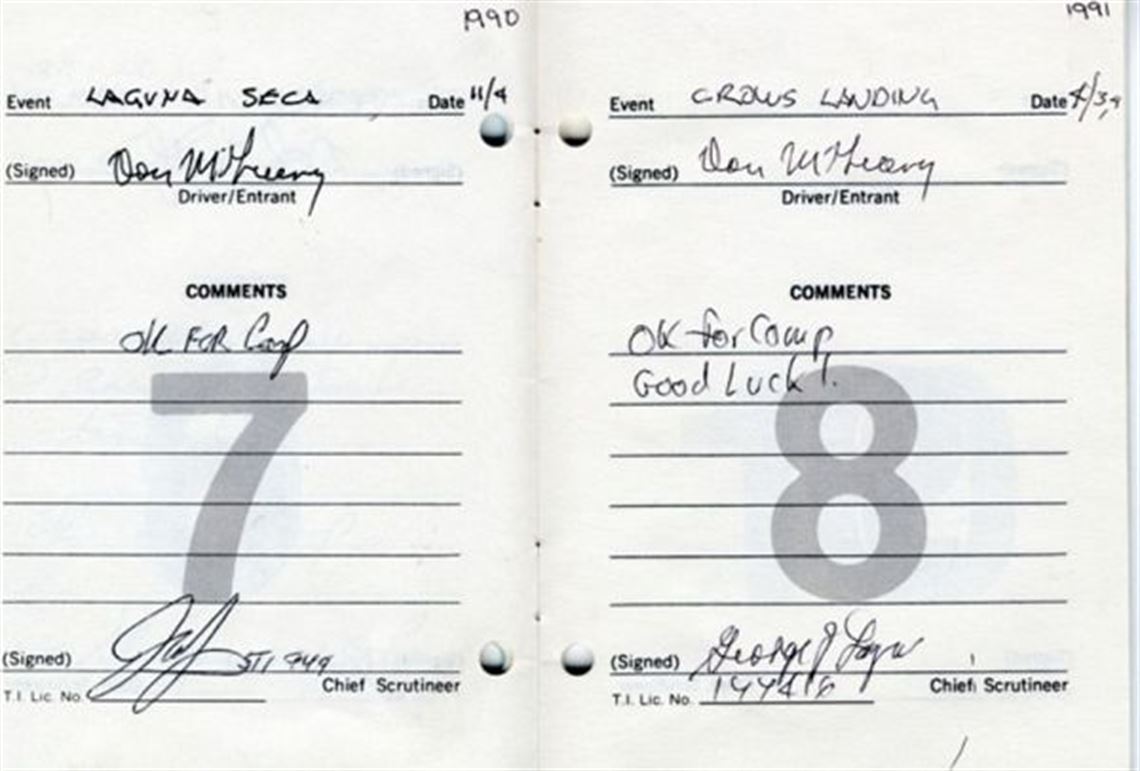 1990
Event LAGUNA SECA Date 11/4
(Signed) Don
Driver/Entrant
COMMENTS
OK FOR Comp
7
(Signed) STI 949
Chief Scrutineer
T.I. Lic No.
1991
Event CROWS LANDING Date
(Signed) Don
Driver/Entrant
COMMENTS
OK for Comp
Good Luck!
8
(Signed) George J
Chief Scrutineer
T.I. Lic. No.